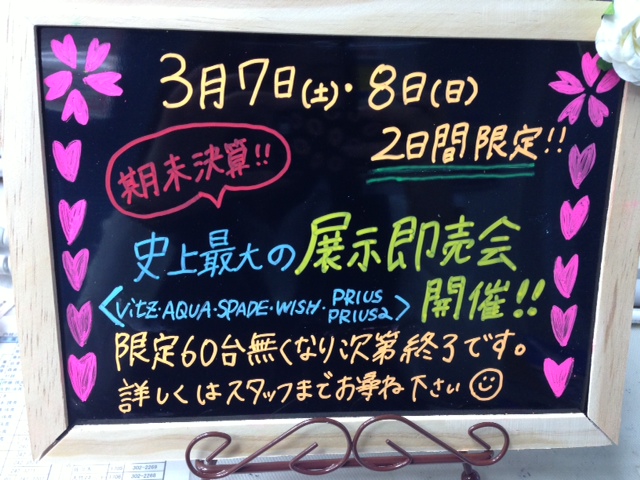 3月7日(土)・8日(日)
2日間限定!!
期末決算!!
史上最大の展示即売会
開催!!
<Vitz・AQUA・SPADE・WISH・PRIUS
PRIUSα>
限定60台無くなり次第終了です。
詳しくはスタッフまでお尋ね下さい
302-2266
302-2266